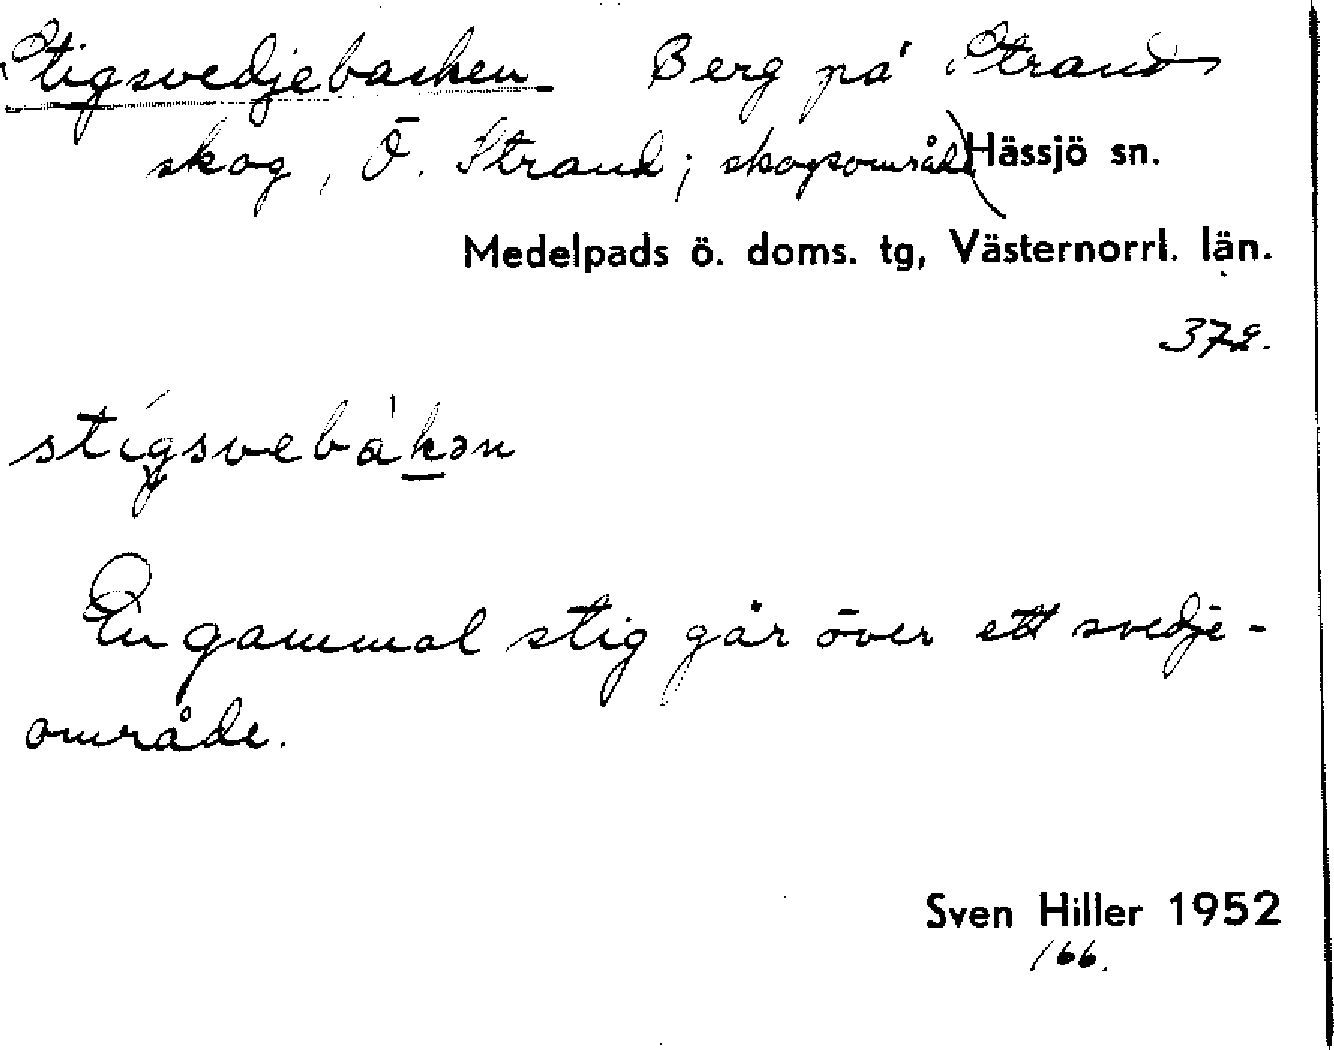 Stigsvedjebacken Berg på Strand
skog, Ö. Strand; skogsområd) Hässjö sn.
Medelpads ö. doms. tg, Västernorrl. län.
372.
stígsvebàkən
En gammal stig går över ett svedje-
område.
Sven Hiller 1952
166.